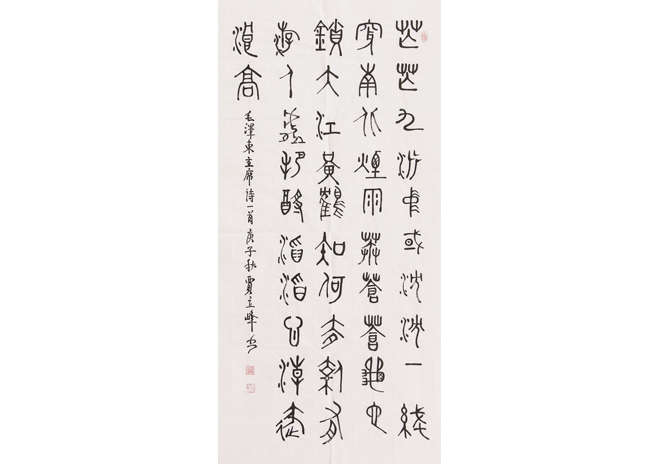 芒芒九派中或沈沈一綫
穿南北煙雨莽蒼蒼龜它
鎖大江黃鶴知何去剩有
遊人處把酹滔滔心淖逐
浪高
毛澤東主席詩一首庚子秋賈立峰書